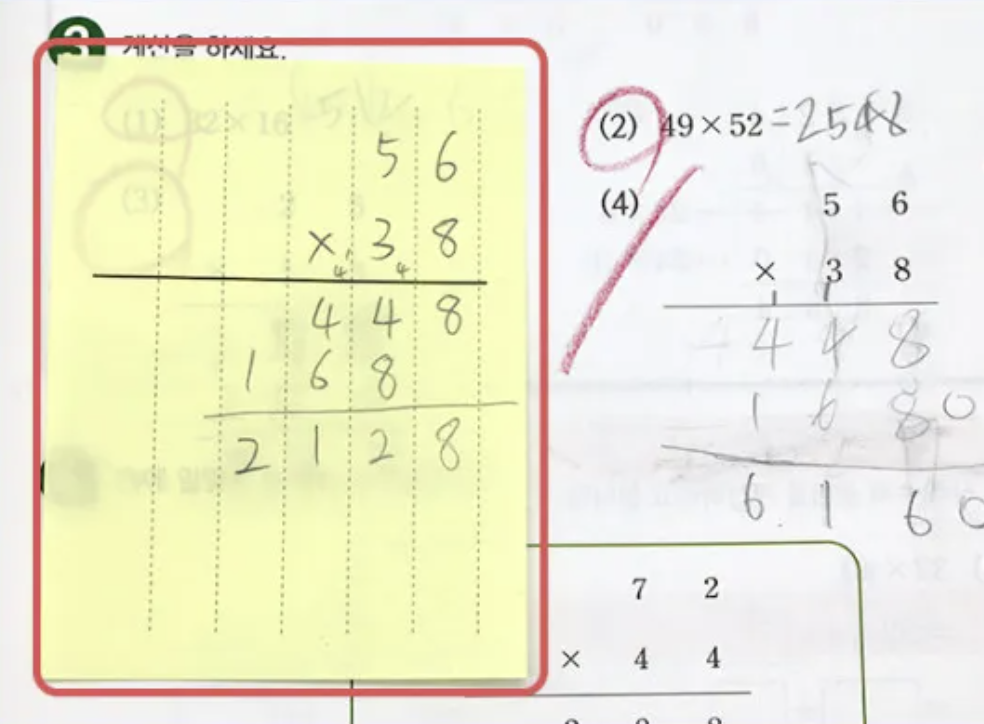 3 계산을 하세요.
(1) 32×16
(3)
5 6
× 3 8
4 4
4 4 8
1 6 8
2 1 2 8
(2) 49×52=2548
(4) 5 6
× 3 8
4 4 8
1 6 8 0
6 1 6 0
7 2
× 4 4